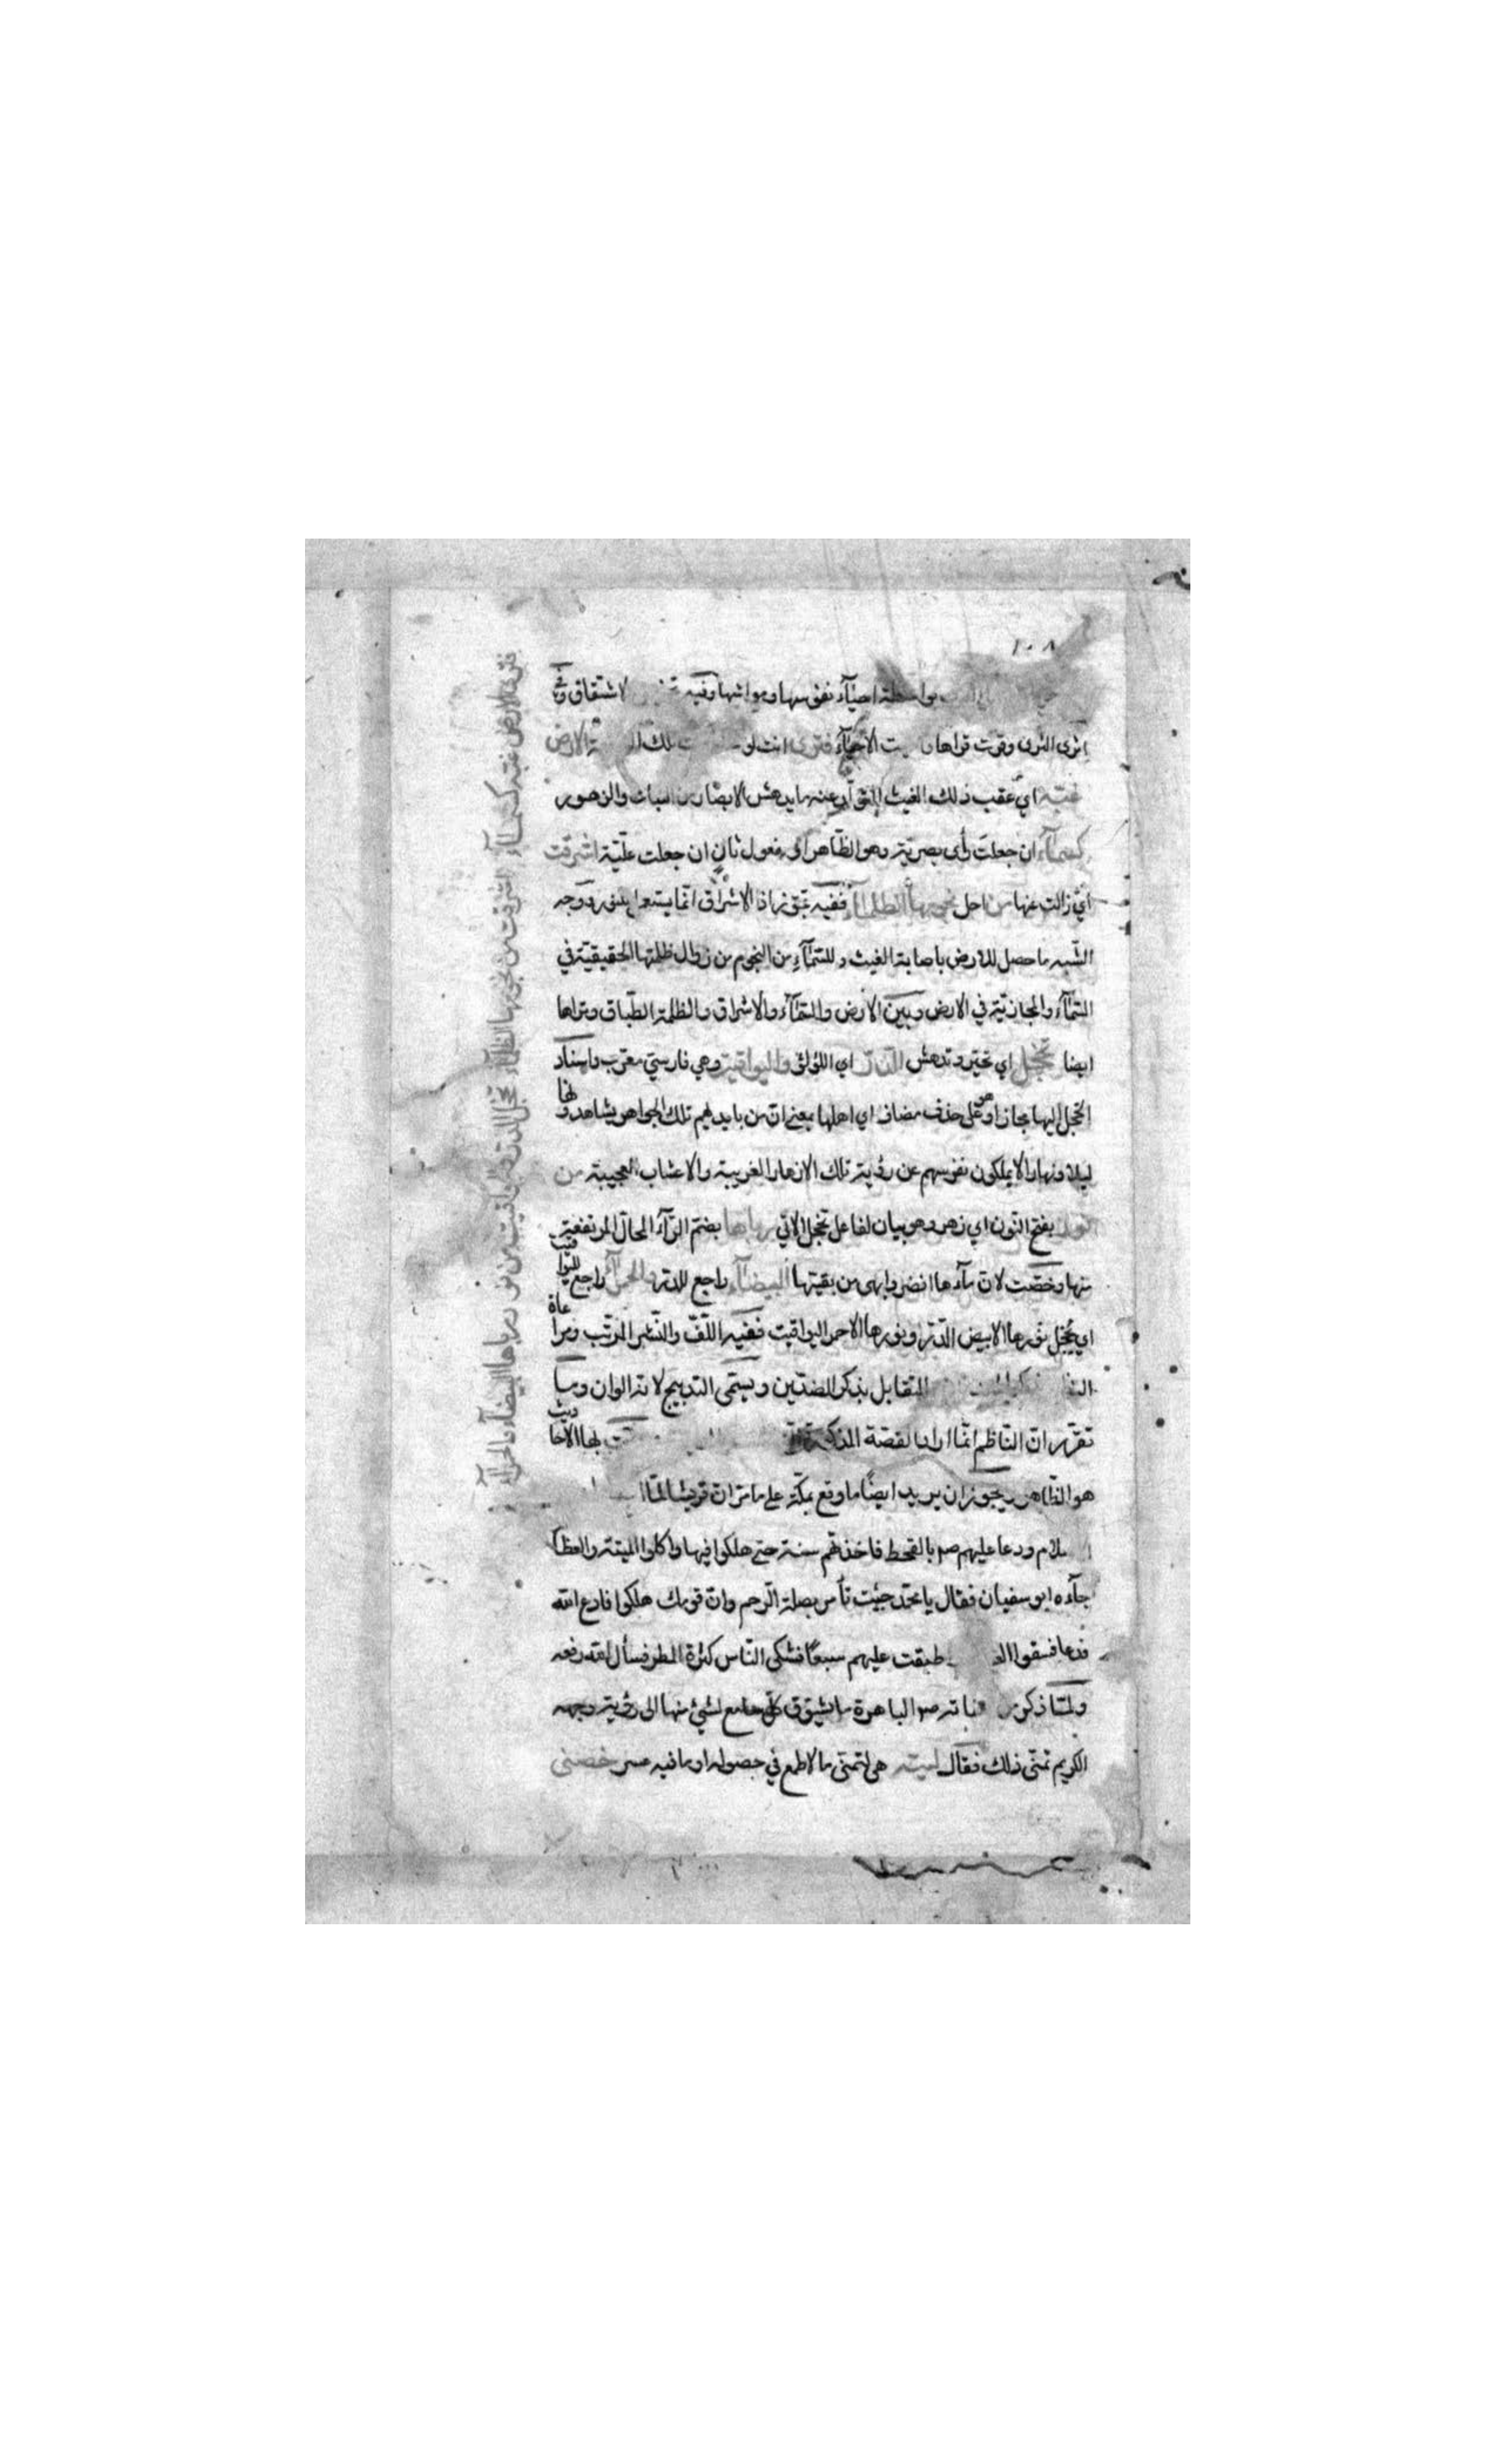 ١٠٨
بواسطة احيآء نفوسها ومواشيها وفيه الاشتقاق وثم
اثرى الثرى وقرت قراها الاحيآء فترى انت تلك الارض
غبه اي عقب ذلك الغيث الابصار والزهور
كسمآء ان جعلت رأى بصرية وهو الظاهر او مفعول ثان ان جعلت علمية اشرقت
اي زالت عنها من اجل نجومها الظلمآء ففيه تجوز اذ الاشراق انما يستعمل ووجه
الشبه ما حصل للارض باصابة الغيث وللسمآء من النجوم من زوال ظلمتها الحقيقية في
السمآء والمجازية في الارض وبين الارض والسمآء والاشراق والظلمة الطباق وتراها
ايضا تخجل اي تحير وتدهش الدر اي اللؤلؤ واليواقيت وهي فارسي معرب واسناد
الخجل اليها مجاز او هو على حذف مضاف اي اهلها بمعنى ان من بايديهم تلك الجواهر يشاهدونها
ليلا ونهارا لا يملكون نفوسهم عن رؤية تلك الازهار الغريبة والاعشاب العجيبة من
نور بفتح النون اي زهر وهو بيان لفاعل تخجل الاتي رباها بضم الرآء المحال المرتفعة
منها وخصت لان مآءها انضر وابهى من بقيتها البيضآء راجع للدر والحمرآء راجع لليواقيت
اي يخجل نورها الابيض الدر ونورها الاحمر اليواقيت ففيه اللف والنشر المرتب ومراعاة
التقابل بذكر الضدين ويسمى التدبيج لانه الوان وما
تقرر ان الناظم انما اراد القصة المذكورة لها الاحاديث
هو الظاهر ويجوز ان يريد ايضا ما وقع بمكة على ما مر ان قريشا لما
ودعا عليهم صم بالقحط فاخذتهم سنة حتى هلكوا فيها واكلوا الميتة والعظا
جآءه ابو سفيان فقال يا محمد جئت تأمر بصلة الرحم وان قومك هلكوا فادع الله
فدعا فسقوا طبقت عليهم سبعا فشكى الناس كثرة المطر فسأل الله رفعه
ولما ذكر صم الباهرة ما يشوق كل سامع لشئ منها الى رؤية وجهه
الكريم تمنى ذلك فقال ليته هي لتمنى ما لا طمع في حصوله او ما فيه عسر خصنى
فترى الارض غبه كسمآء اشرقت من نجومها الظلمآء تخجل الدر واليواقيت من نور رباها البيضآء والحمرآء